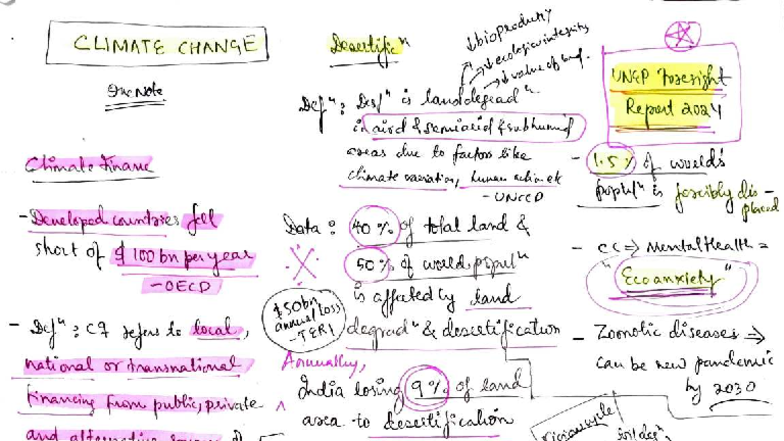 CLIMATE CHANGE
One Note
Climate Finance
- Developed countries fell
short of $100 bn per year
- OECD
- Defⁿ : CF refers to local,
national or transnational
financing from public, private
and alternative
Desertificⁿ
↓ bioproductivity
↓ ecological integrity
↓ value of land.
Defⁿ : Desⁿ is land degradⁿ
in arid & semiarid & subhumid
areas due to factors like
climate variation, human activities
- UNCCD
Data : 40% of total land &
50% of world populⁿ
is affected by land
degradⁿ & desertification
$50bn
annual loss
- TERI
Annually,
India losing 9% of land
area to desertification
UNEP Foresight
Report 2024
- 1.5% of world's
populⁿ is forcibly dis-
placed
- CC ⇒ Mental Health =
"Eco anxiety"
- Zoonotic diseases ⇒
can be new pandemic
by 2030